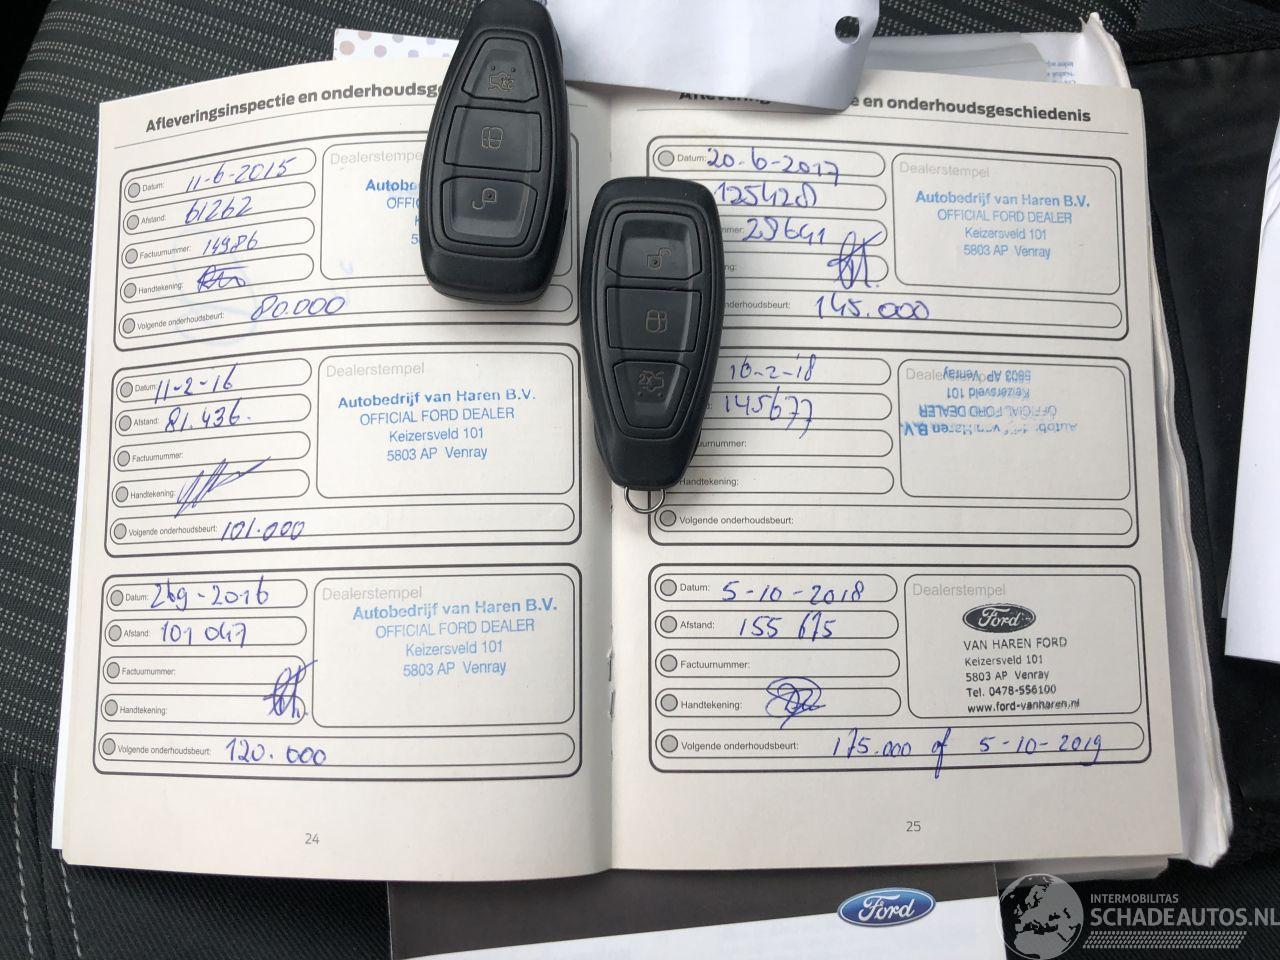 Afleveringsinspectie en onderhoudsg
Dealerstempel
Datum: 11-6-2015
Afstand: 61262
Factuurnummer: 14986
Handtekening:
Volgende onderhoudsbeurt: 80.000
Dealerstempel
Datum: 11-2-16
Afstand: 81.436.
Factuurnummer:
Handtekening:
Volgende onderhoudsbeurt: 101.000
Autobedrijf van Haren B.V.
OFFICIAL FORD DEALER
Keizersveld 101
5803 AP Venray
Dealerstempel
Datum: 269-2016
Afstand: 101 047
Factuurnummer:
Handtekening:
Volgende onderhoudsbeurt: 120.000
Autobedrijf van Haren B.V.
OFFICIAL FORD DEALER
Keizersveld 101
5803 AP Venray
24
e en onderhoudsgeschiedenis
Datum: 20-6-2017
125428
28641
nderhoudsbeurt: 145.000
Dealerstempel
Autobedrijf van Haren B.V.
OFFICIAL FORD DEALER
Keizersveld 101
5803 AP Venray
16-2-18
145677
Handtekening:
Volgende onderhoudsbeurt:
5803 AP Venray
Keizersveld 101
OFFICIAL FORD DEALER
Datum: 5-10-2018
Afstand: 155 675
Factuurnummer:
Handtekening:
Volgende onderhoudsbeurt: 175.000 of 5-10-2019
Dealerstempel
Ford
VAN HAREN FORD
Keizersveld 101
5803 AP Venray
Tel. 0478-556100
www.ford-vanharen.nl
25
Ford
INTERMOBILITAS
SCHADEAUTOS.NL